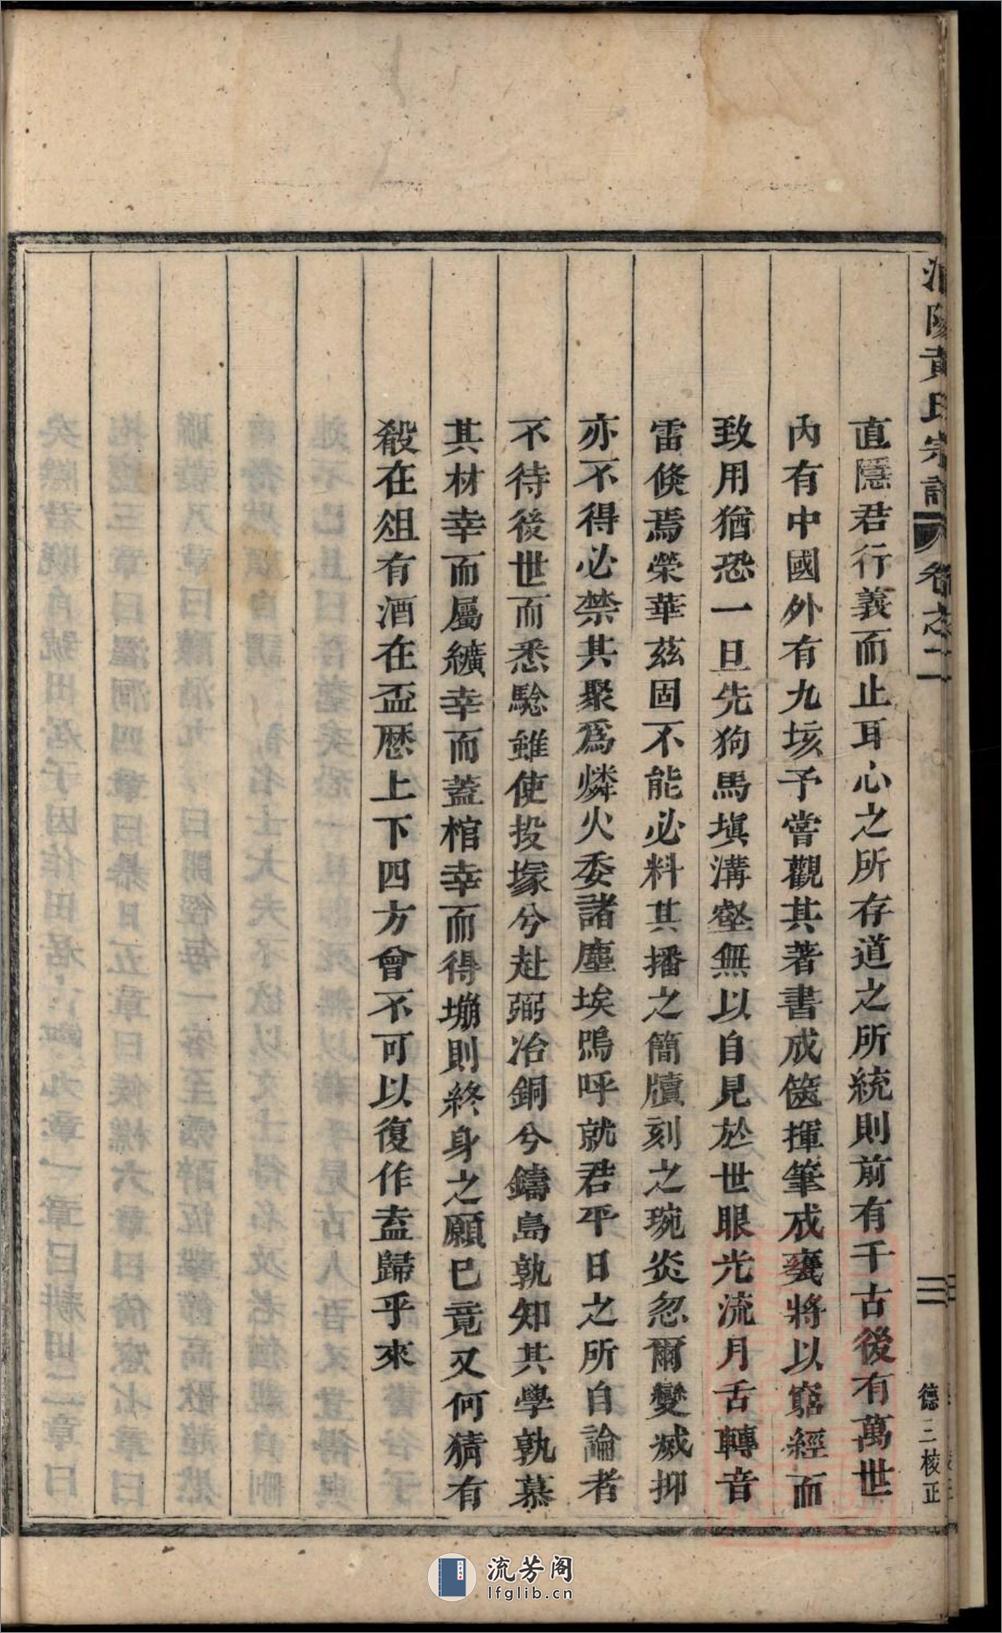 陽黃氏宗譜 卷之二 三 德三校正
直隱君行義而止耳心之所存道之所統則前有千古後有萬世
內有中國外有九垓予嘗觀其著書成篋揮筆成甕將以窮經而
致用猶恐一旦先狗馬塡溝壑無以自見於世眼光流月舌轉音
雷倏焉榮華茲固不能必料其播之簡牘刻之琬炎忽爾變滅抑
亦不得必禁其聚爲燐火委諸塵埃嗚呼就君平日之所自論者
不待後世而悉騐雖使投塚兮赴弼冶銅兮鑄島孰知其學孰慕
其材幸而屬纊幸而蓋棺幸而得塴則終身之願已竟又何猜有
殽在俎有酒在盃歷上下四方曾不可以復作盍歸乎來
流芳阁
lfglib.cn